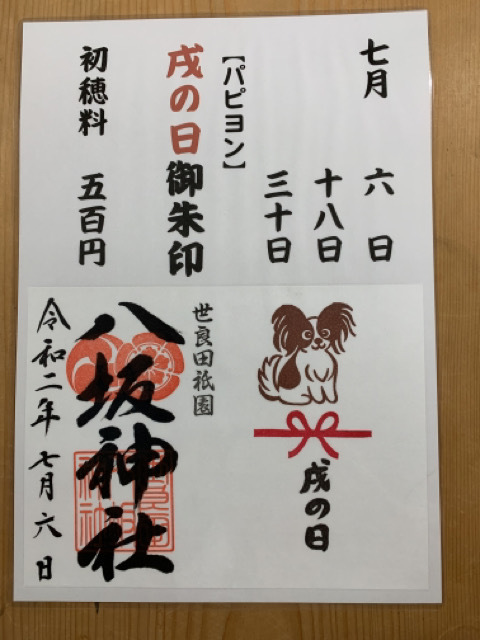 七月 六日
十八日
三十日
【パピヨン】
戌の日御朱印
初穂料 五百円
戌の日
世良田祇園
八坂神社
令和二年七月六日